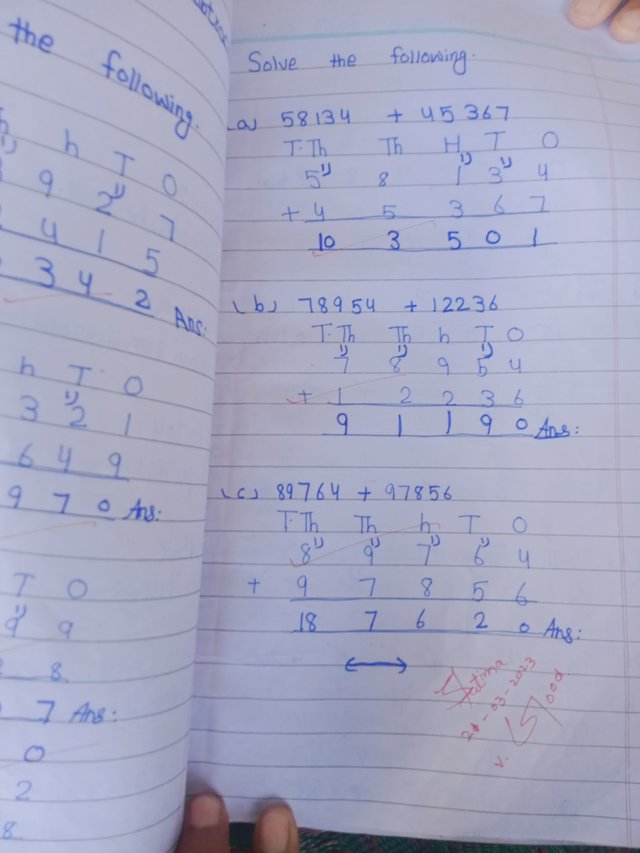 the following.
h T O
9 2 7
4 1 5
3 4 2 Ans:
h T O
3 2 1
6 4 9
9 7 0 Ans:
T O
9 9
8
7 Ans:
0
2
8
Solve the following.
(a) 58134 + 45367
T.Th Th H T O
5 8 1 3 4
+ 4 5 3 6 7
10 3 5 0 1
(b) 78954 + 12236
T.Th Th h T O
7 8 9 5 4
+ 1 2 2 3 6
9 1 1 9 0 Ans:
(c) 89764 + 97856
T.Th Th h T O
8 9 7 6 4
+ 9 7 8 5 6
18 7 6 2 0 Ans:
Fatima
21-03-2023
V. Good